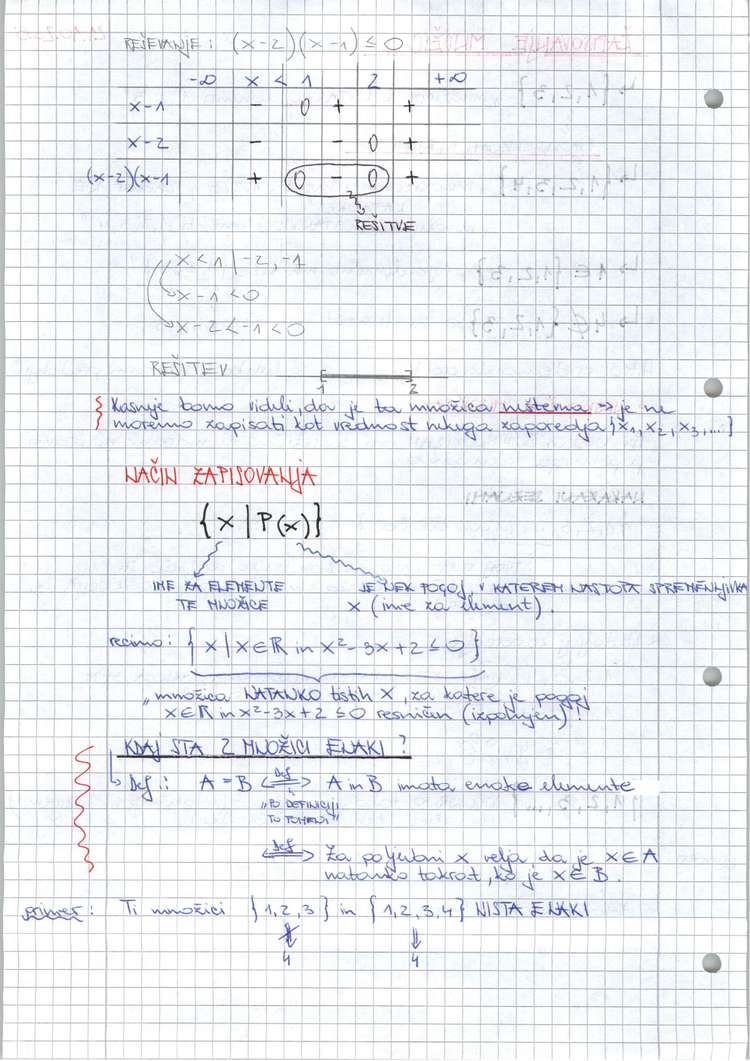 REŠEVANJE: (x-2)(x-1) ≤ 0
-∞ x < 1 2 +∞
x-1 - 0 + +
x-2 - - 0 +
(x-2)(x-1 + 0 - 0 +
REŠITVE
x < 1 | -2, -1
x-1 < 0
x-2 < -1 < 0
REŠITEV
1 2
Kasneje bomo videli, da je ta množica neštevna → je ne
moremo zapisati kot vrednost nekega zaporedja {x₁, x₂, x₃, ...}
NAČIN ZAPISOVANJA
{x | P(x)}
IME ZA ELEMENTE
TE MNOŽICE
JE NEK POGOJ, V KATEREM NASTOPA SPREMENLJIVKA
x (ime za element).
recimo: {x | x∈ℝ in x²-3x+2 ≤ 0}
"množica NATANKO tistih x, za katere je pogoj
x∈ℝ in x²-3x+2 ≤ 0 resničen (izpolnjen)!
KDAJ STA 2 MNOŽICI ENAKI?
↳ Def.: A = B <=Def=> A in B imata enake elemente
"PO DEFINICIJI
TO POMENI"
<=Def=> Za poljubni x velja, da je x∈A
natanko takrat, ko je x∈B.
primer: Ti množici {1,2,3} in {1,2,3,4} NISTA ENAKI
4 4